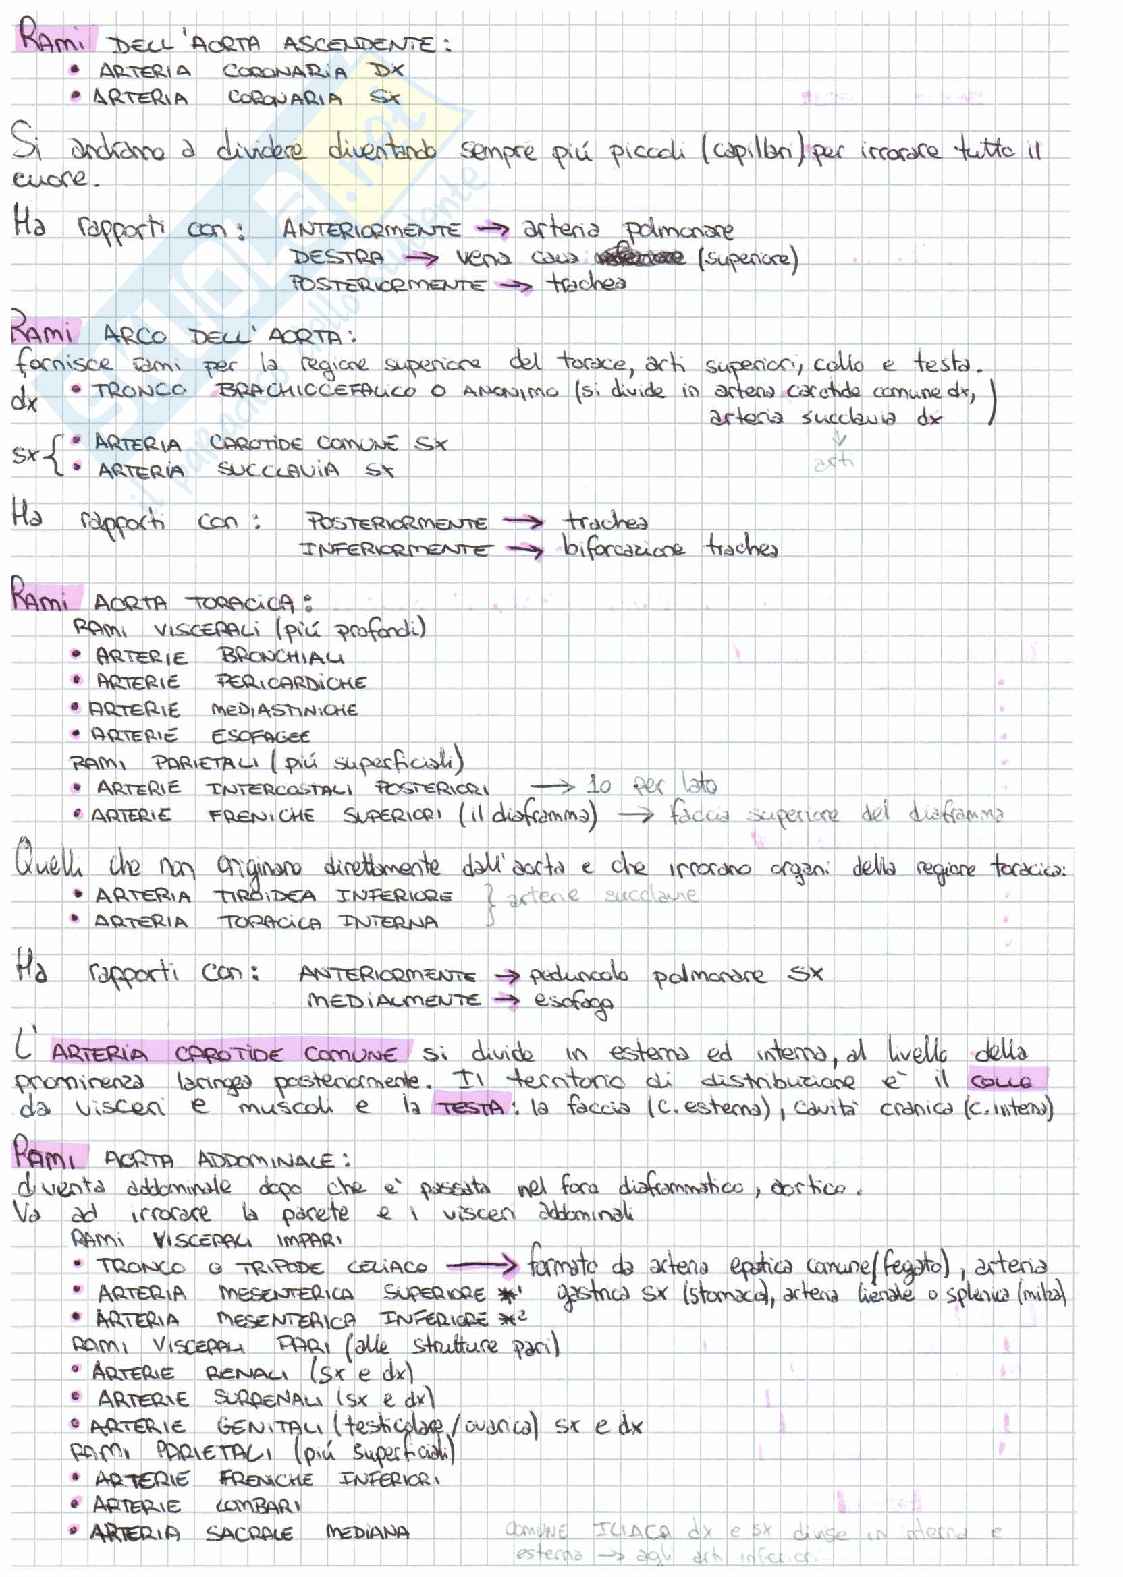 RAMI DELL'AORTA ASCENDENTE:
• ARTERIA CORONARIA DX
• ARTERIA CORONARIA SX
Si andranno a dividere diventando sempre piú piccoli (capillari) per irrorare tutto il
cuore.
Ha rapporti con: ANTERIORMENTE → arteria polmonare
DESTRA → vena cava (superiore)
POSTERIORMENTE → trachea
RAMI ARCO DELL'AORTA:
fornisce rami per la regione superiore del torace, arti superiori, collo e testa.
dx • TRONCO BRACHIOCEFALICO O ANONIMO (si divide in arteria carotide comune dx,
arteria succlavia dx)
↓
arti
sx { • ARTERIA CAROTIDE COMUNE SX
• ARTERIA SUCCLAVIA SX
Ha rapporti con: POSTERIORMENTE → trachea
INFERIORMENTE → biforcazione trachea
RAMI AORTA TORACICA:
RAMI VISCERALI (piú profondi)
• ARTERIE BRONCHIALI
• ARTERIE PERICARDICHE
• ARTERIE MEDIASTINICHE
• ARTERIE ESOFAGEE
RAMI PARIETALI (piú superficiali)
• ARTERIE INTERCOSTALI POSTERIORI → 10 per lato
• ARTERIE FRENICHE SUPERIORI (il diaframma) → faccia superiore del diaframma
Quelli che non originano direttamente dall'aorta e che irrorano organi della regione toracica:
• ARTERIA TIROIDEA INFERIORE } arterie succlavie
• ARTERIA TORACICA INTERNA
Ha rapporti con: ANTERIORMENTE → peduncolo polmonare SX
MEDIALMENTE → esofago
L'ARTERIA CAROTIDE COMUNE si divide in esterna ed interna, al livello della
prominenza laringea posteriormente. Il territorio di distribuzione è il COLLO
da visceri e muscoli e la TESTA: la faccia (c. esterna), cavità cranica (c. interna)
RAMI AORTA ADDOMINALE:
diventa addominale dopo che è passata nel foro diaframmatico, aortico.
Va ad irrorare la parete e i visceri addominali
RAMI VISCERALI IMPARI
• TRONCO O TRIPODE CELIACO → formato da arteria epatica comune (fegato), arteria
gastrica sx (stomaco), arteria lienale o splenica (milza)
• ARTERIA MESENTERICA SUPERIORE *1
• ARTERIA MESENTERICA INFERIORE *2
RAMI VISCERALI PARI (alle strutture pari)
• ARTERIE RENALI (sx e dx)
• ARTERIE SURRENALI (sx e dx)
• ARTERIE GENITALI (testicolare/ovarica) sx e dx
RAMI PARIETALI (piú superficiali)
• ARTERIE FRENICHE INFERIORI
• ARTERIE LOMBARI
• ARTERIA SACRALE MEDIANA
COMUNE ILIACA dx e sx divise in interna e
esterna → agli arti inferiori